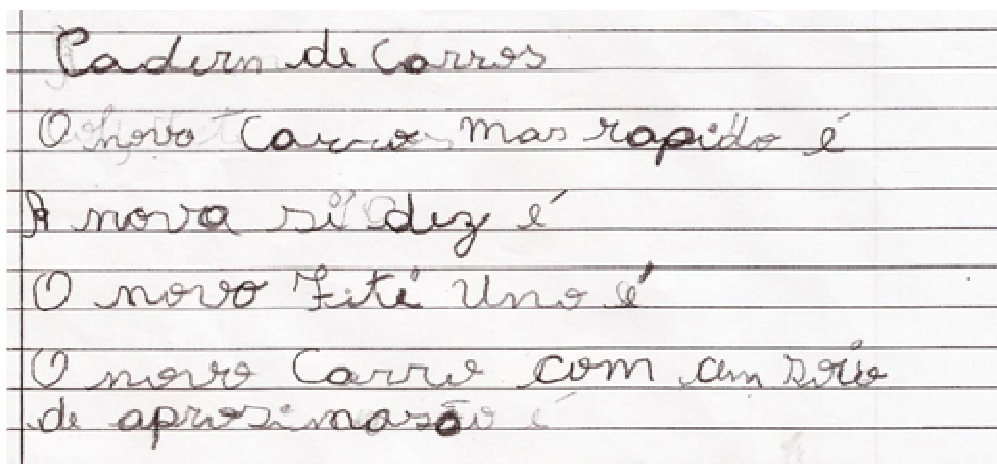 Cadern de Carros
O novo Carro mas rapido é
A nova si dez é
O novo Fité Uno é
O novo Carro com
de aprosimasão é